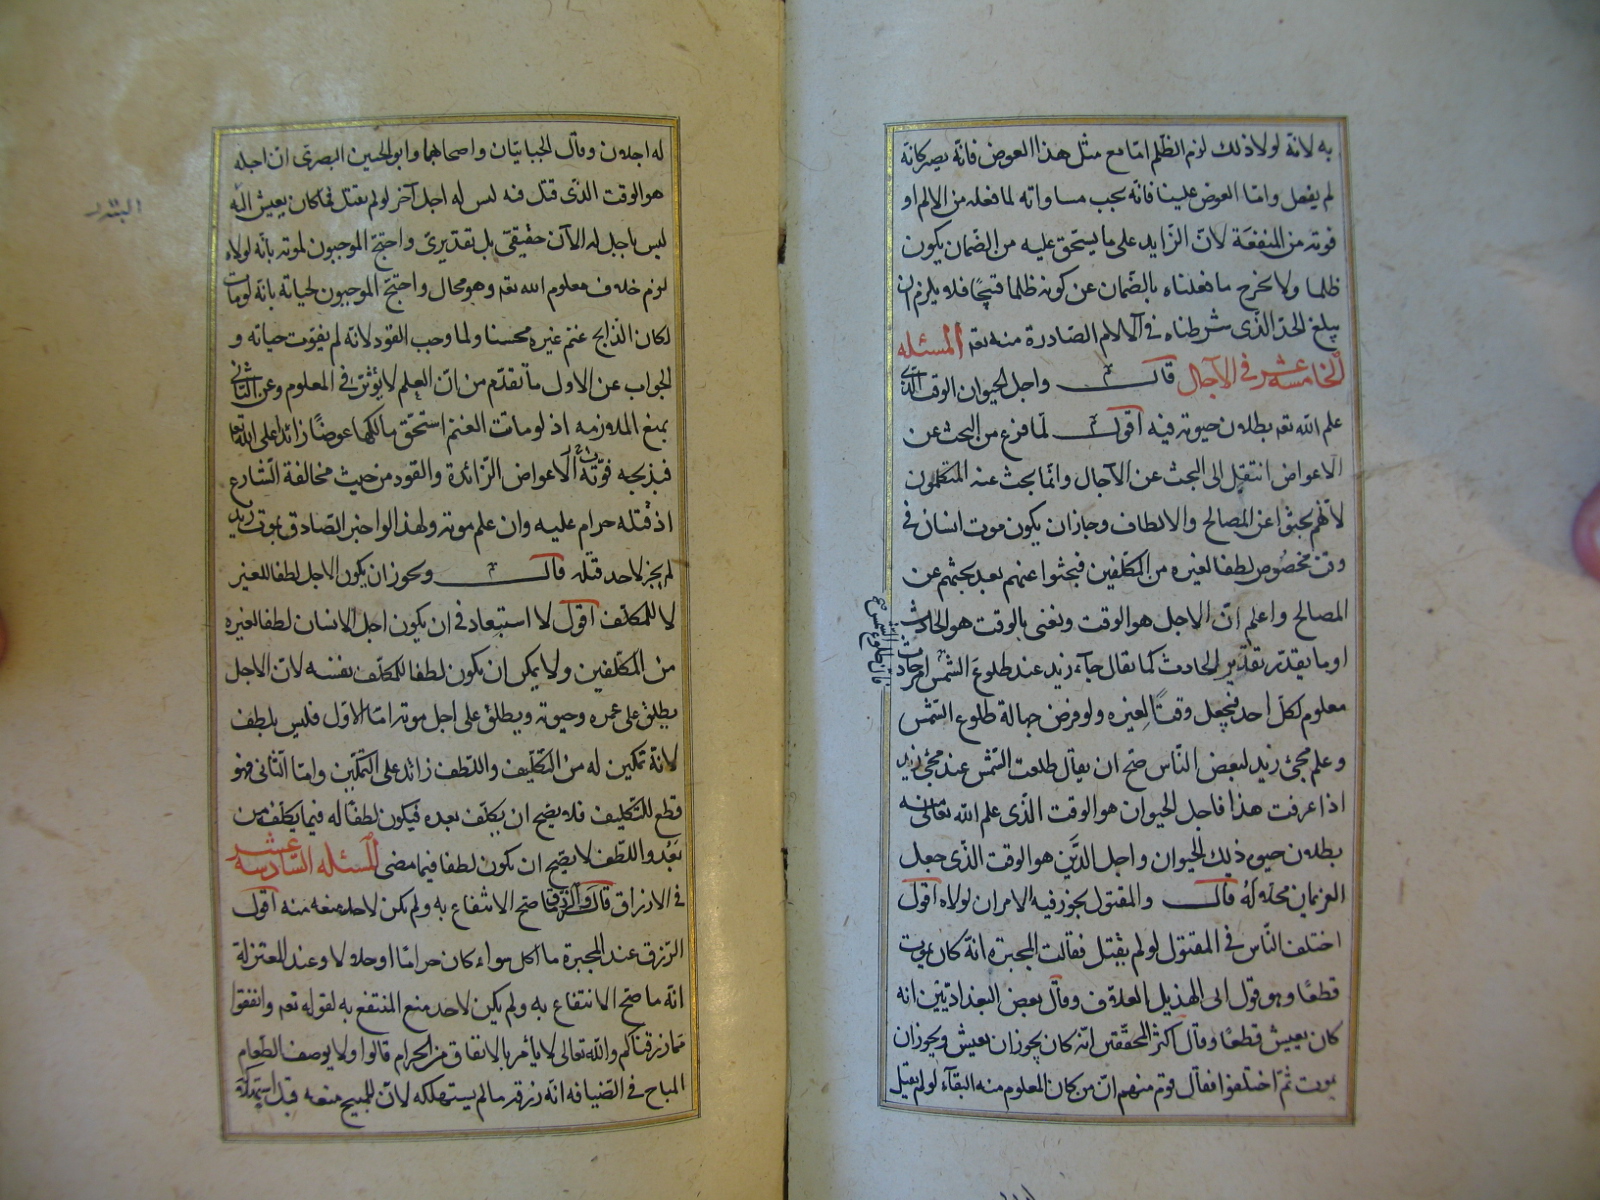 به لانه لولا ذلك لزم الظلم امّا مع مثل هذا العوض فانّه يصير كانّه
لم يفعل وامّا العوض علينا فانّه يجب مساواته لما فعله من الالم او
فوته من المنفعة لانّ الزّايد على ما يستحق عليه من الضّمان يكون
ظلما ولا يخرج ما فعلناه بالضّمان عن كونه ظلما قبيحًا فلا يلزم ان
يبلغ الحدّ الذّى شرطناه فى الآلام الصّادرة منه تعم المسئله
الخامسة عشر فى الآجال قال واجل الحيوان الوقت الذّى
علم الله تعم بطلان حيوته فيه اقول لمّا فرغ من البحث عن
الاعواض انتقل الى البحث عن الآجال وانّما بحث عنه المتكلمون
لانّهم بحثوا عن المصالح والالطاف وجاز ان يكون موت انسان فى
وقت مخصُوص لطفا لغيره من المكلّفين فبحثوا عنهم بعد بحثهم عن
المصالح واعلم انّ الاجل هو الوقت ونعنى بالوقت هو الحادث
او ما يقدّر تقدير الحادث كما يقال جاء زيد عند طلوع الشمس امر حادث
معلوم لكلّ احد فجعل وقتًا لغيره ولو فرض جهالة طلوع الشّمس
وعلم مجئ زيد لبعض النّاس صحّ ان يقال طلعت الشّمس عند مجئ زيد
اذا عرفت هذا فاجل الحيوان هو الوقت الّذى علم الله تعالى منه
بطلان حيوة ذلك الحيوان واجل الدّين هو الوقت الذّى جعل
الغريمان محلّا لهُ قال والمقتول يجوز فيه الامران لولاه اقول
اختلف النّاس فى المقتول لو لم يقتل فقالت المجبرة انّه كان يموت
قطعًا وهو قول ابى الهذيل العلاف وقال بعض البغداديّين انه
كان يعيش قطعًا وقال اكثر المحقّقين انّه كان يجوز ان يعيش ويجوز ان
يموت ثمّ اختلفوا فقال قوم منهم انّ من كان المعلوم منه البقآء لو لم يقتل
له اجلان وقال الجبائيّان واصحابهما وابو الحسين البصرى انّ اجله
هو الوقت الذّى قتل فيه ليس له اجل آخر لو لم يقتل فما كان يعيش اليه
ليس باجل له الآن حقيقى بل تقديرىّ واحتجّ الموجبون لموته بانّه لولاه
لزم خلاف معلوم الله تعم وهو محال واحتجّ الموجبون لحياته بانّه لو مات
لكان الذّابح غنم غيره محسنا ولما وجب القود لانّه لم يفوّت حياته و
الجواب عن الاول ما تقدّم من انّ العلم لا يؤثر فى المعلوم وعن الثّانى
بمنع الملازمة اذ لو ماتت الغنم استحقّ مالكها عوضًا زائدا على الله تعا
فبذبحه فوّته الاعواض الزّائدة والقود من حيث مخالفة الشّارع
اذ قتله حرام عليه وان علم موته ولهذا لو اخبر الصّادق بموت زيد
لم يجز لاحد قتله قال ويجوز ان يكون الاجل لطفا للغير
لا للمكلّف اقول لا استبعاد فى ان يكون اجل الانسان لطفا لغيره
من المكلّفين ولا يمكن ان يكون لطفا للمكلّف نفسه لانّ الاجل
يطلق على عمره وحيوته ويطلق على اجل موته امّا الاوّل فليس بلطف
لانّه تمكين له من التّكليف واللّطف زائد على التّمكين وامّا الثّانى فهو
قطع للتّكليف فلا يصّح ان يكلّف بعده فيكون لطفًا له فيما يكلّف من
بَعْدُ واللّطف لا يصّح ان يكون لطفا فيما مضى المسئله السّادسة عشر
فى الارزاق قال والرّزق ما صحّ الانتفاع به ولم يكن لاحد منعه منه اقول
الرّزق عند المجبرة ما اكل سواء كان حرامًا او حلالا وعند المعتزلة
انّه ما صحّ الانتفاع به ولم يكن لاحد منع المنتفع به لقوله تعم وانفقوا
ممّا رزقناكم والله تعالى لا يأمر بالانفاق من الحرام قالوا ولا يوصف الطّعام
المباح فى الضّيافه انّه رزقه ما لم يستهلكه لانّ للمبيح منعه قبل استهلاكه